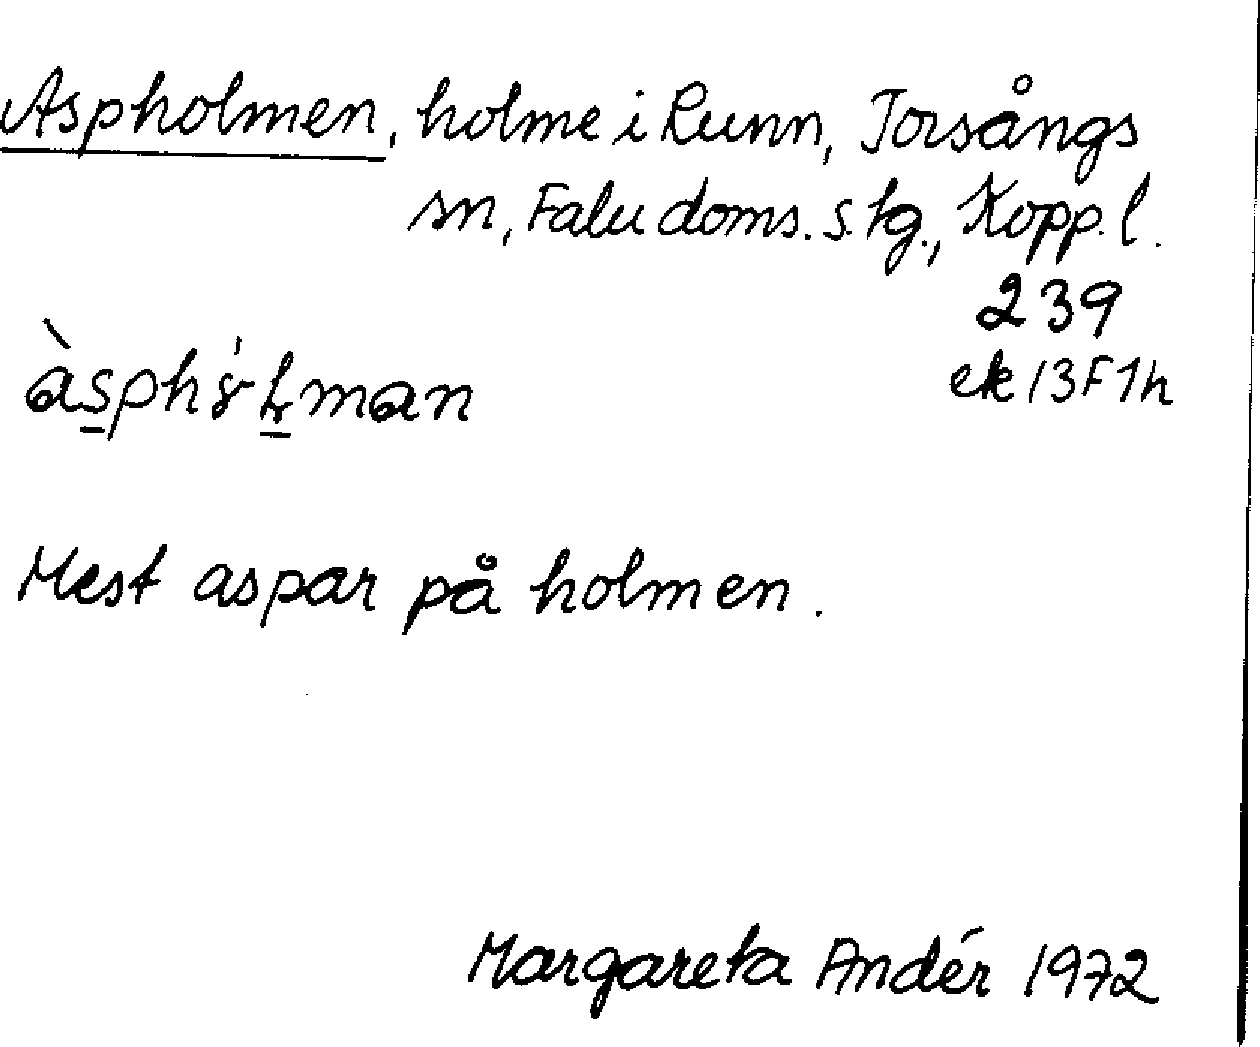 Aspholmen, holme i Runn, Torsångs
sn, Falu doms.s.tg., Kopp.l.
239
ek 13F1h
Mest aspar på holmen.
Margareta Andér 1972